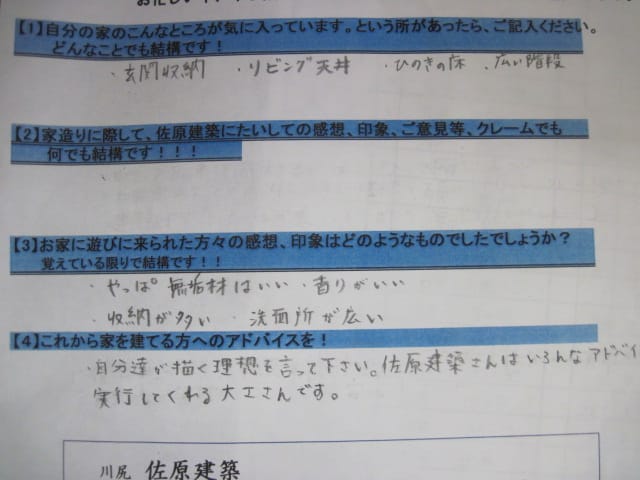 【1】自分の家のこんなところが気に入っています。という所があったら、ご記入ください。
どんなことでも結構です！
・玄関収納 ・リビング天井 ・ひのきの床 ・広い階段
【2】家造りに際して、佐原建築にたいしての感想、印象、ご意見等、クレームでも
何でも結構です！！！
【3】お家に遊びに来られた方々の感想、印象はどのようなものでしたでしょうか？
覚えている限りで結構です！！
・やっぱ無垢材はいい ・香りがいい
・収納が多い ・洗面所が広い
【4】これから家を建てる方へのアドバイスを！
・自分達が描く理想を言って下さい。佐原建築さんはいろんなアドバイ
実行してくれる大工さんです。
川尻 佐原建築